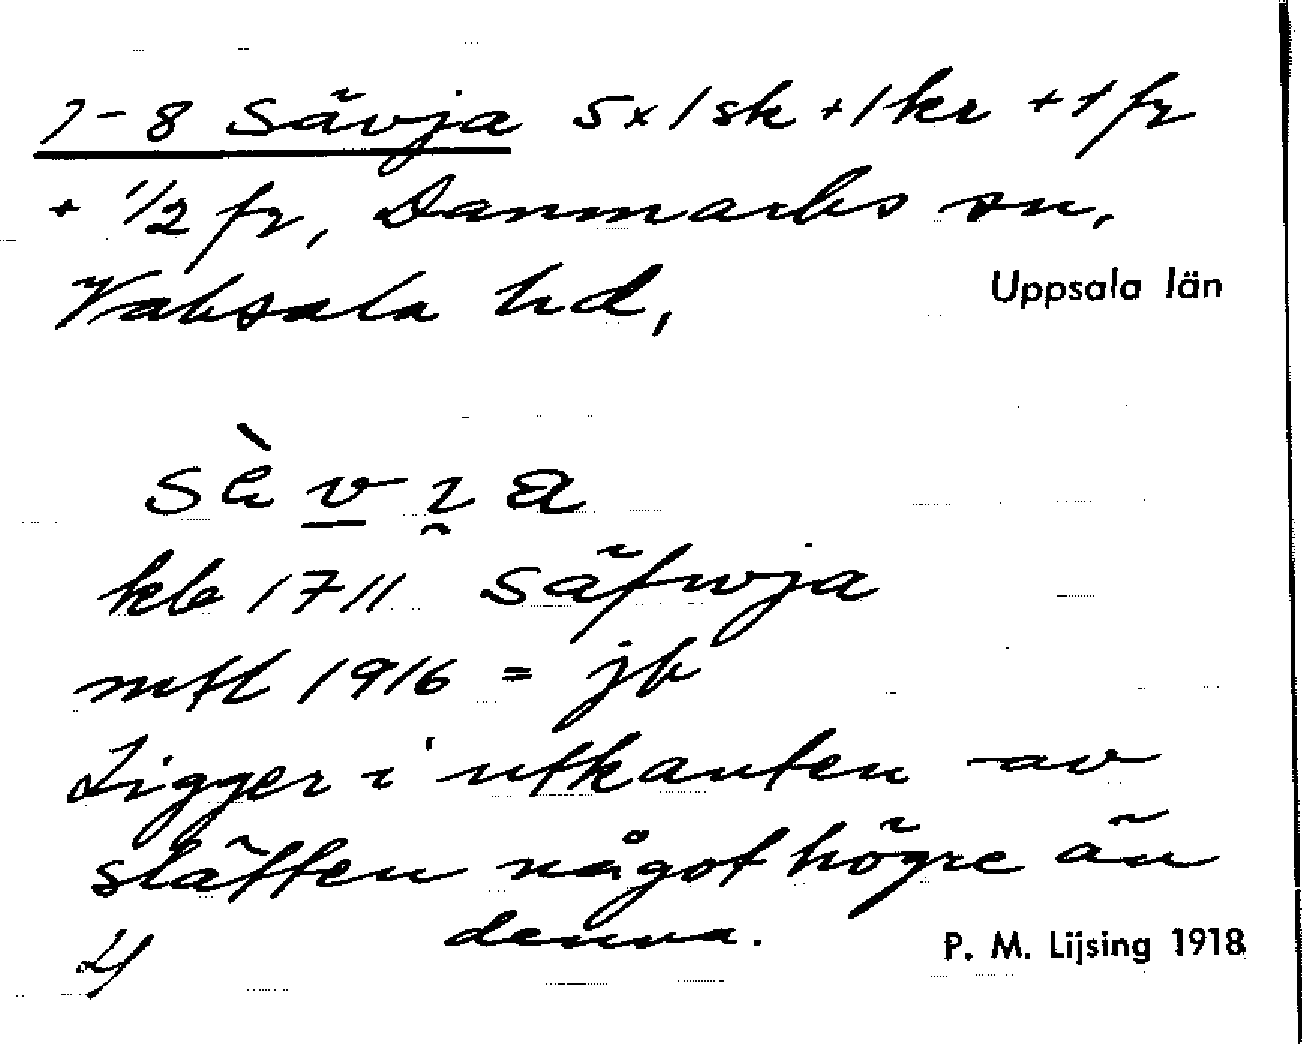 7-8 Sävja 5x1sk+1kr +1fr
+ 1/2 fr, Danmarks sn,
Vaksala hd,
Uppsala län
sävi̯a
kb 1711 Säfwja
mtl 1916 = jb
Ligger i utkanten av
slätten något högre än
denna.
P. M. Lijsing 1918